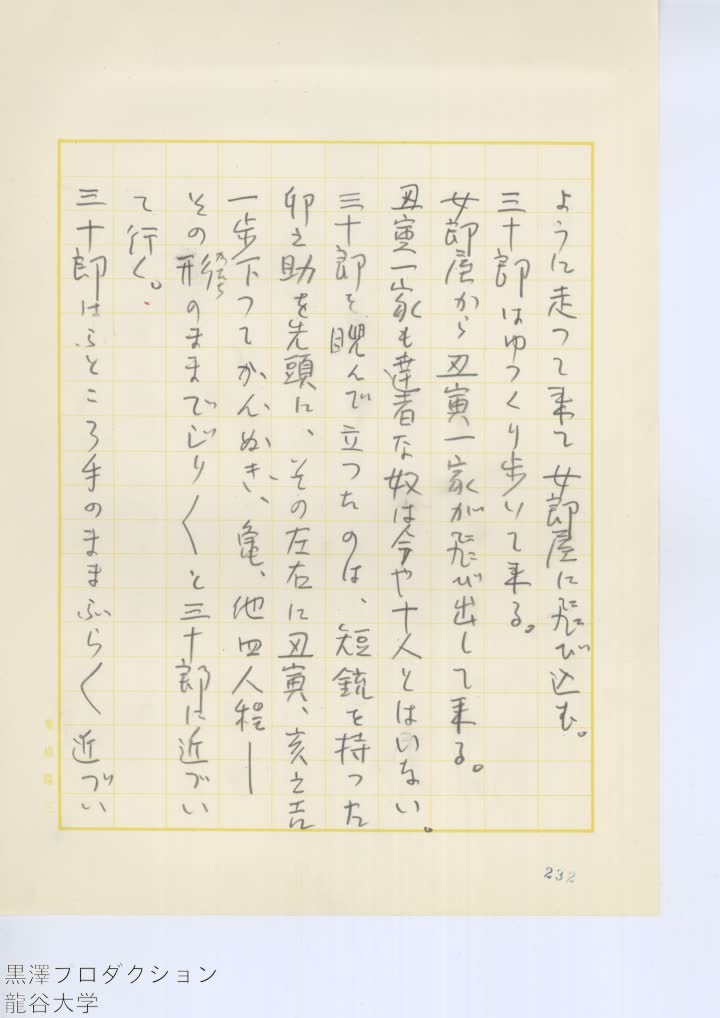 ように走つて来て女郎屋に飛び込む。
三十郎はゆつくり歩いて来る。
女郎屋から丑寅一家が飛び出して来る。
丑寅一家も達者な奴は今や十人とはいない。
三十郎を睨んで立つたのは、短銃を持つた
卯之助を先頭に、その左右に丑寅、亥之吉
一歩下つてかんぬき、亀、他四人程——
その形のままでじり〱と三十郎に近づい
かたち
て行く。
三十郎はふところ手のままふら〱近づい
232
黒澤プロダクション
龍谷大学